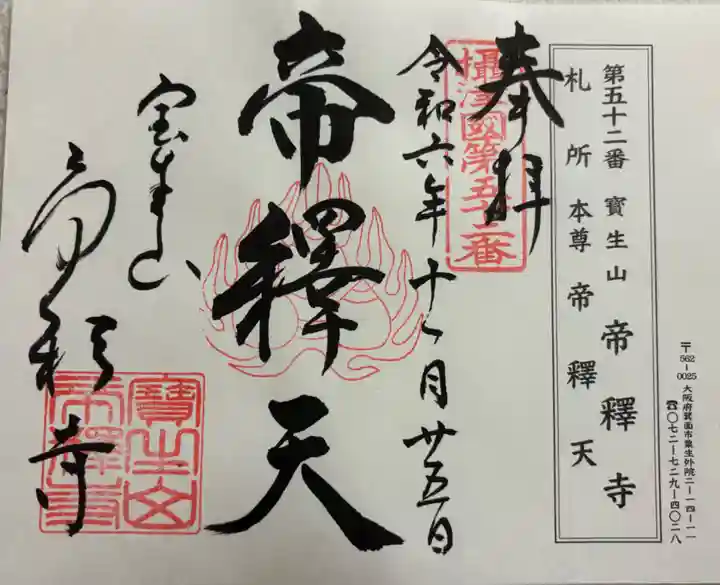 第五十二番 寳生山 帝釋寺
札所本尊 帝釋天
〒562-0025 大阪府箕面市粟生外院二-一四-一一
☎〇七二-七二九-四〇二八
奉拝
攝津國第五十二番
令和六年十一月廿五日
帝釋天
宝生山
帝釈寺
寶生山
帝釋寺